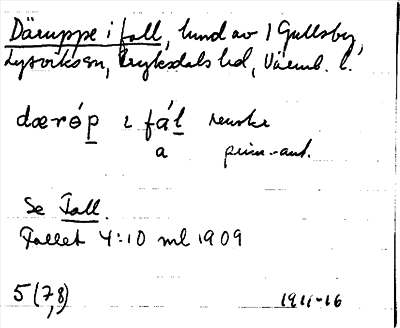 Däruppe i fall, lund av 1 Gullsby,
Lysviks sn, Fryksdals hd, Värml. l.
dærǿp ı fá̀l
a prim-ant.
Se Fall.
Fallet 4:10 ml 1909
5(7,8) 1911-16